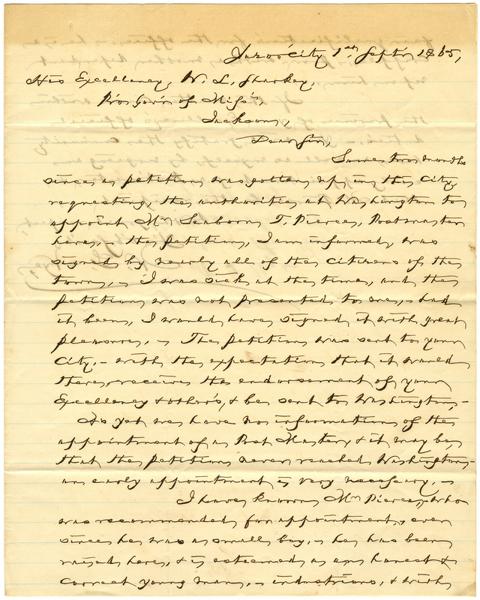 Yazoo City 1st Sept. 1865,
His Excellency, W. L. Sharkey,
Pro. Gov'r of Miss.,
Jackson,
Dear Sir,
Some two months
since a petition was gotten up in this City,
requesting the authorities at Washington to
appoint Mr Seaborn T. Pierce, Postmaster
here, - the petition, I am informed, was
signed by nearly all of the citizens of the
town, - I was sick at the time, and the
petition was not presented to me, - had
it been, I would have signed it with great
pleasure, - The petition was sent to your
City, - with the expectation that it would
there, receive the endorsement of your
Excellency & others, & be sent to Washington, -
As yet we have no information of the
appointment of a Post Master, & it may be
that the petition never reached Washington -
an early appointment is very necessary, -
I have known Mr Pierce, who
was recommended for appointment, ever
since he was a small boy, - he has been
raised here, & is esteemed as an honest &
correct young man, - industrious, & with